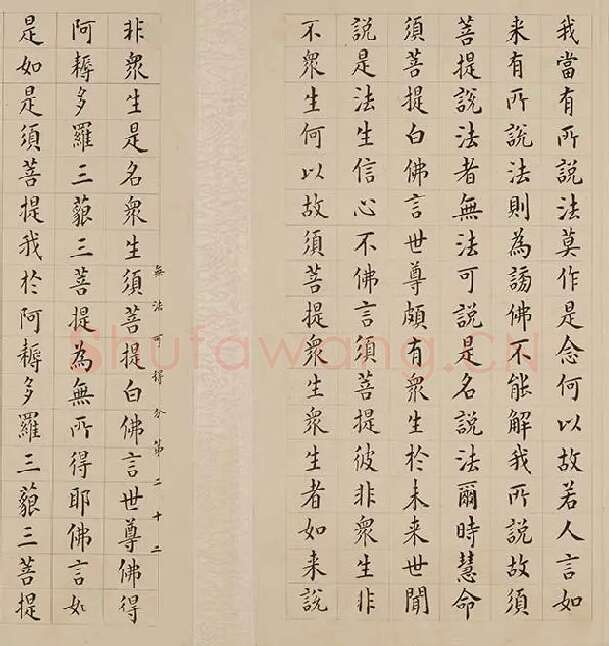 我當有所說法莫作是念何以故若人言如
来有所說法則為謗佛不能解我所說故須
菩提說法者無法可說是名說法爾時慧命
須菩提白佛言世尊頗有衆生於未来世聞
說是法生信心不佛言須菩提彼非衆生非
不衆生何以故須菩提衆生衆生者如来說
無法可得分第二十二
非衆生是名衆生須菩提白佛言世尊佛得
阿耨多羅三藐三菩提為無所得耶佛言如
是如是須菩提我於阿耨多羅三藐三菩提
Shufawang.CN